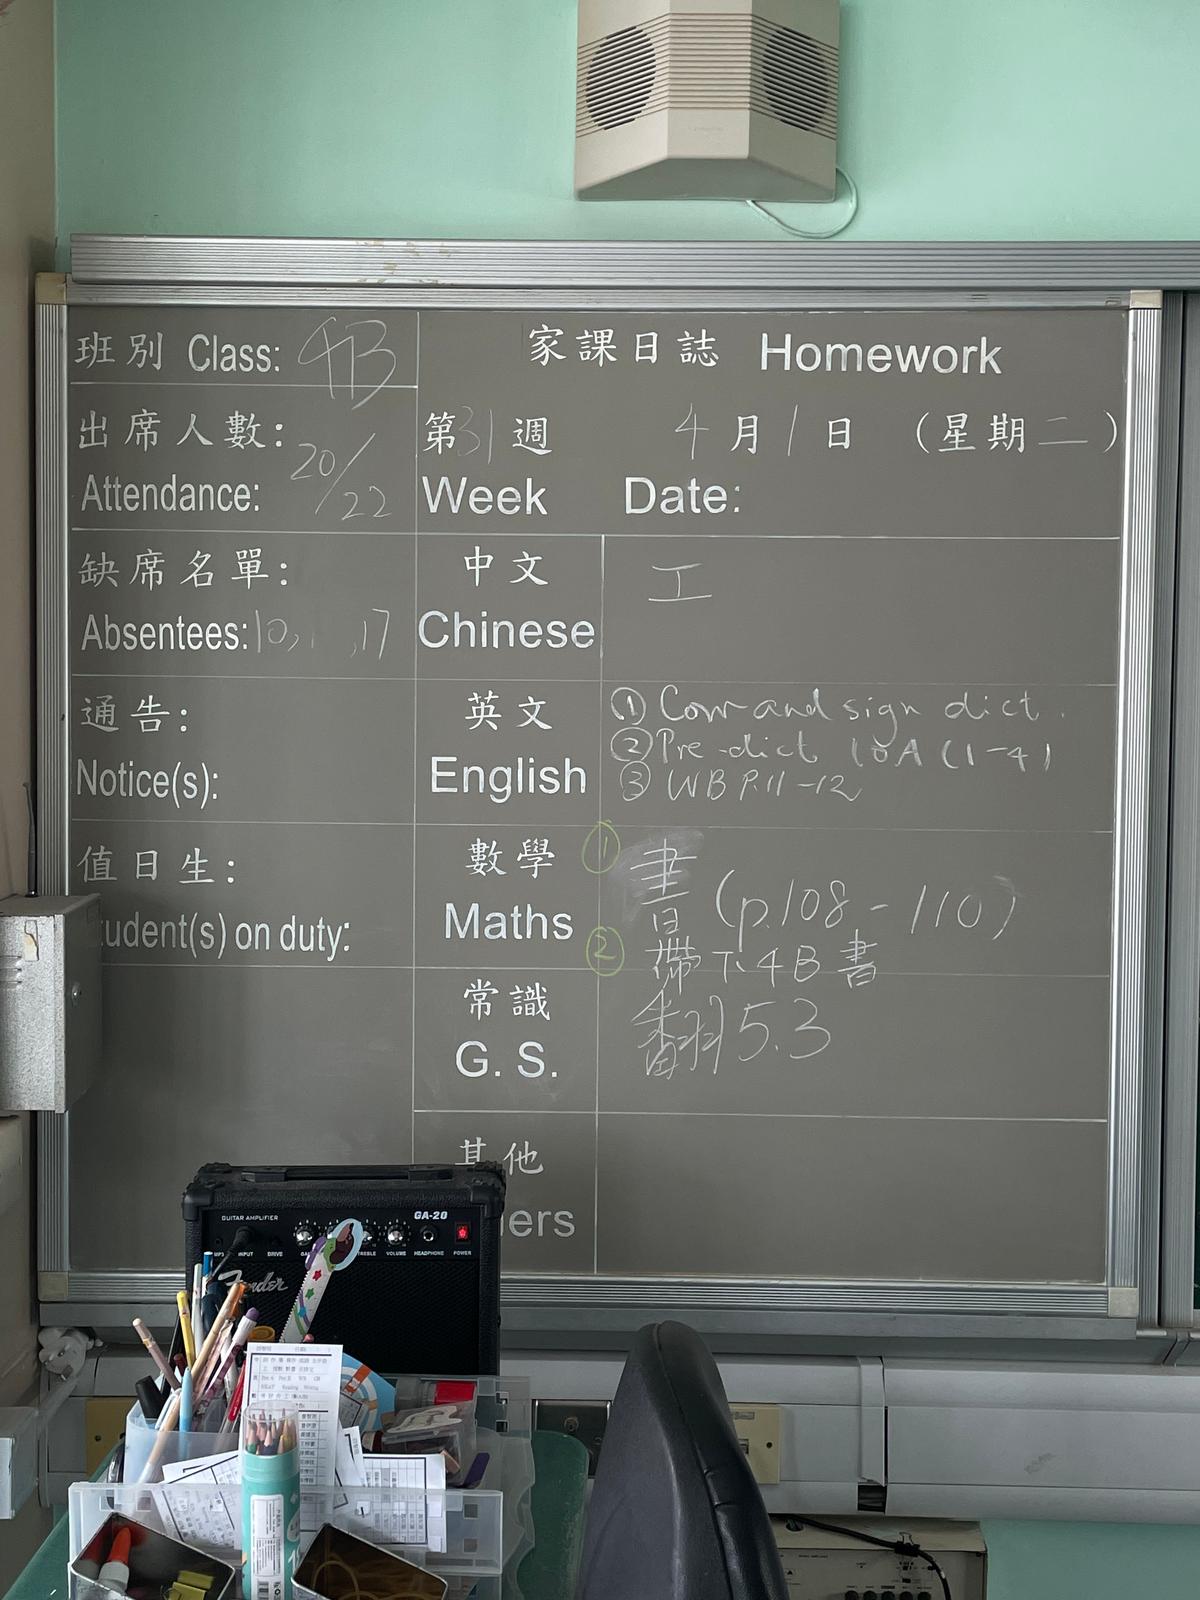 班別 Class: 4B
家課日誌 Homework
出席人數: 20/22
Attendance:
第31週 4月1日 (星期二)
Week Date:
缺席名單:
Absentees: 10, ,17
中文
Chinese
工
通告:
Notice(s):
英文
English
① Corr and sign dict.
② Pre-dict 10A (1-4)
③ WB P.11-12
值日生:
tudent(s) on duty:
數學
Maths
① 書 (p.108-110)
② 帶下4B書
常識
G. S.
翻5.3
其他
hers
GUITAR AMPLIFIER
GA-20
INPUT DRIVE TREBLE VOLUME HEADPHONE POWER
Fender